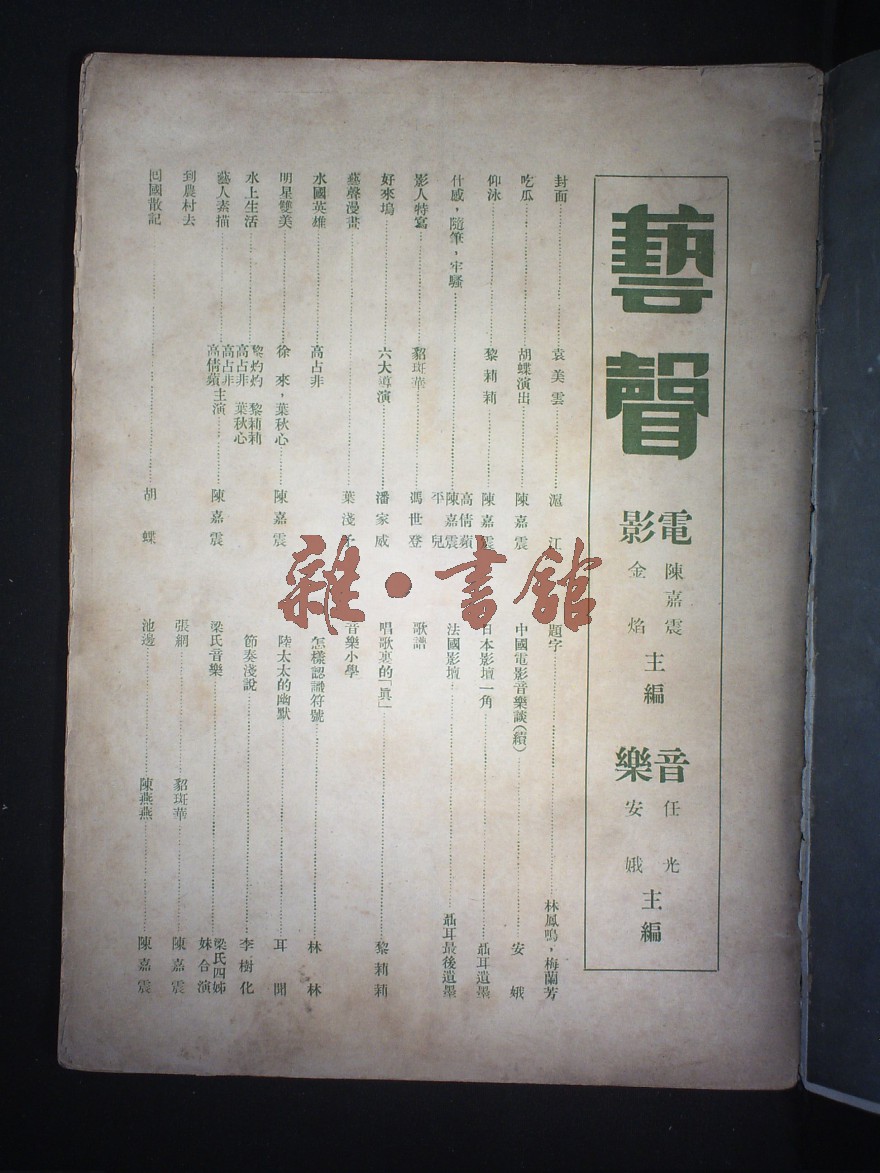 藝聲
電影 陳嘉震 金焰 主編
音樂 任光 安娥 主編
封面 袁美雲 滬江
吃瓜 胡蝶演出 陳嘉震
仰泳 黎莉莉 陳嘉震
什感，隨筆，牢騷 高倩蘋 陳嘉震 平兒
影人特寫 貂斑華 馮世登
好來塢 六大導演 潘家威
藝聲漫畫 葉淺予
水國英雄 高占非
明星雙美 徐來，葉秋心 陳嘉震
水上生活 黎灼灼 黎莉莉 高占非 葉秋心
藝人素描 高占非 高倩蘋主演 陳嘉震
到農村去
囘國散記 胡蝶
題字 林鳳鳴，梅蘭芳
中國電影音樂談（續） 安娥
日本影壇一角 聶耳遺墨
法國影壇 聶耳最後遺墨
歌譜
唱歌裏的「眞」 黎莉莉
音樂小學
怎樣認識符號 林林
陸太太的幽默 耳聞
節奏淺說 李樹化
梁氏音樂 梁氏四姊妹合演
張網 貂斑華 陳嘉震
池邊 陳燕燕 陳嘉震
雜·書館